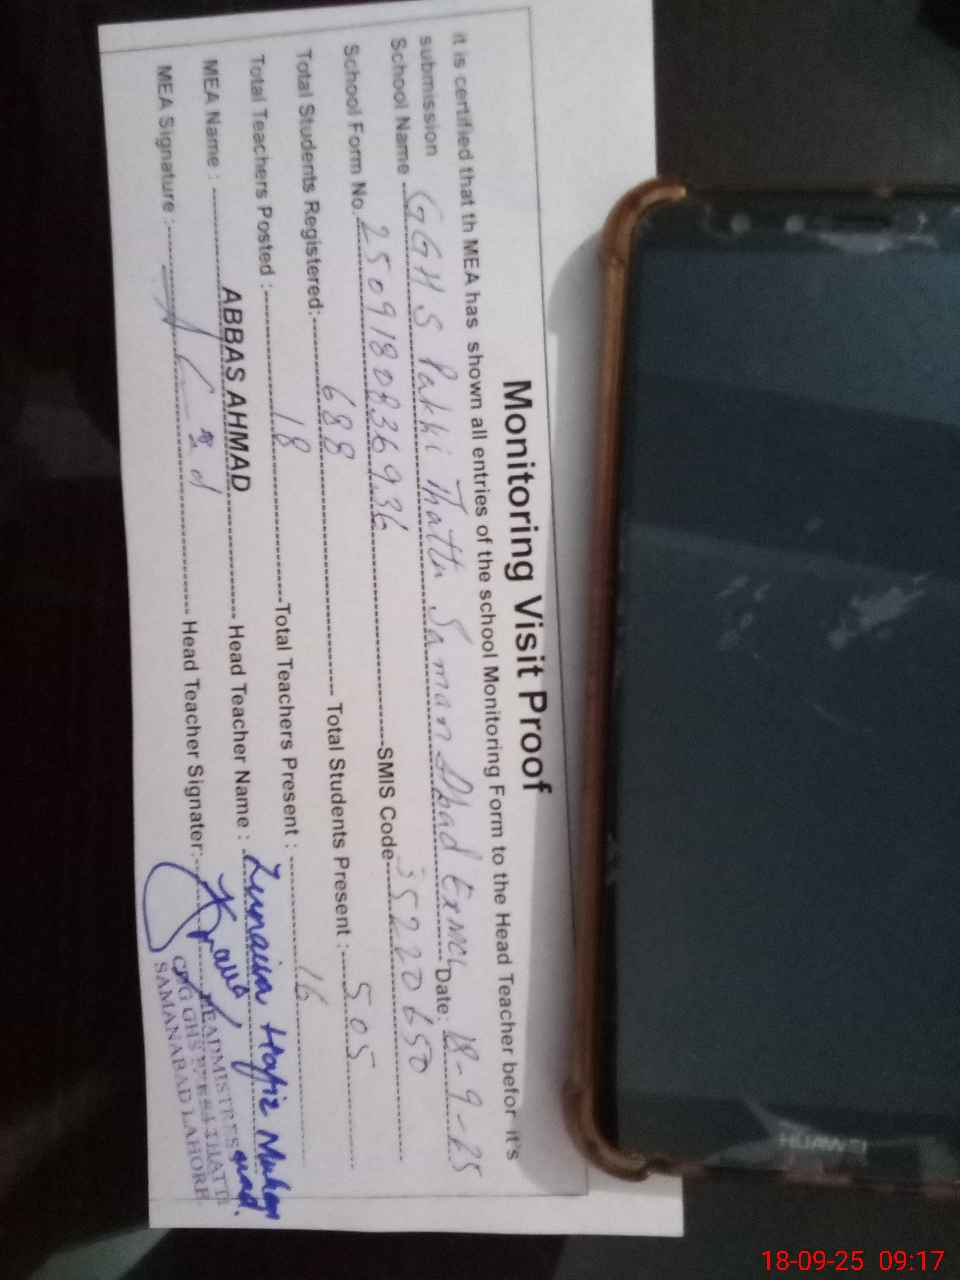 Monitoring Visit Proof
it is certified that th MEA has shown all entries of the school Monitoring Form to the Head Teacher befor it's
submission
School Name GGHS Pakki Thatti Saman Abad Date: 18-9-25
School Form No. 25091808369 SMIS Code 35220650
Total Students Registered: 688 Total Students Present : 505
Total Teachers Posted : 18 Total Teachers Present : 16
MEA Name : ABBAS AHMAD Head Teacher Name : Zunaira Hafiz Muhammad
MEA Signature : Head Teacher Signater:
HEADMISTRESS
THATTI
SAMANABAD LAHORE
HUAWEI
18-09-25 09:17